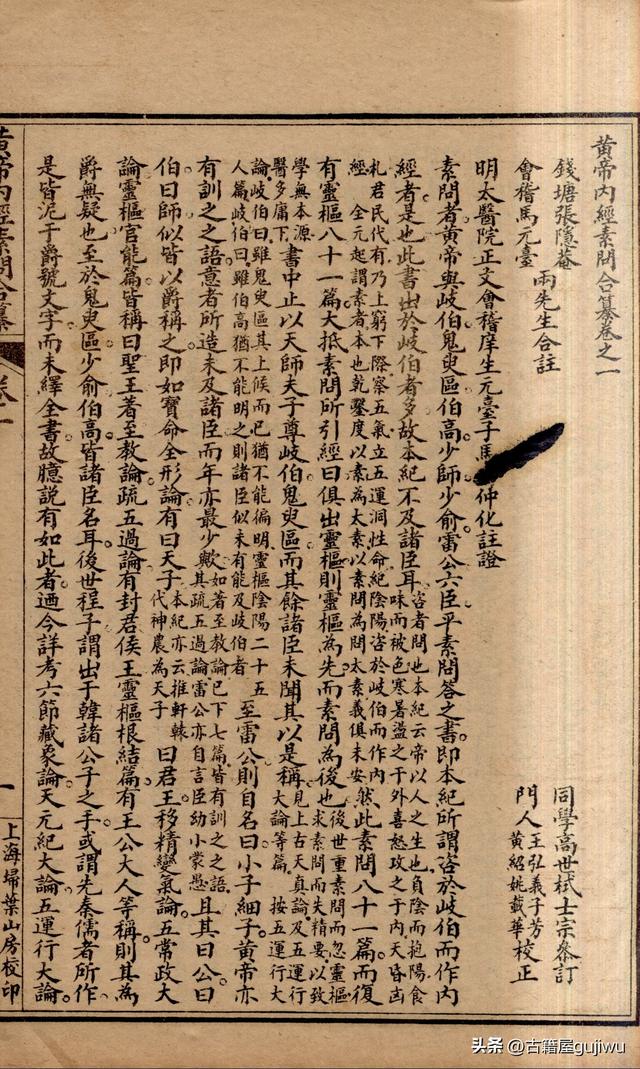 黃帝內經素問合纂卷之一
錢塘張隱菴
會稽馬元臺
兩先生合註
同學高世栻士宗參訂
門人
王弘義子芳
黃紹姚載華
校正
明太醫院正文會稽庠生元臺子馬仲化註證
素問者黃帝與歧伯鬼臾區伯高少師少俞雷公六臣平素問答之書即本紀所謂咨於歧伯而作內
經者是也此書出於歧伯者多故本紀不及諸臣耳
咨者問也本紀云帝以人之生也負陰而抱陽食
味而被色寒暑盪之于外喜怒攻之于內夭昏凶
札君民代有乃上窮下際察五氣立五運洞性命紀陰陽咨於歧伯而作內
經 全元起謂素者本也乾鑿度以素為太素以素問為問太素義俱未安
然此素問八十一篇而復
有靈樞八十一篇大抵素問所引經曰俱出靈樞則靈樞為先而素問為後也
後世重素問而忽靈樞
求素問而失精要以致
學無本源
醫多庸下
書中止以天師夫子尊歧伯鬼臾區而其餘諸臣未聞其以是稱
見上古天真論及五運行
大論等篇 按五運行大
論歧伯曰雖鬼臾區其上候而已猶不能徧明靈樞陰陽二十五
人篇歧伯曰雖伯高猶不能明之則諸臣似未有能及歧伯者
至雷公則自名曰小子細子黃帝亦
有訓之之語意者所造未及諸臣而年亦最少歟
如著至教論已下七篇皆有訓之之語
其疏五過論雷公亦自言臣幼小蒙愚
且其曰公曰
伯曰師似皆以爵稱之即如寶命全形論有曰天子
本紀亦云推軒轅
代神農為天子
曰君王移精變氣論五常政大
論靈樞官能篇皆稱曰聖王著至教論疏五過論有封君侯王靈樞根結篇有王公大人等稱則其為
爵無疑也至於鬼臾區少俞伯高皆諸臣名耳後世程子謂出于韓諸公子之手或謂先秦儒者所作
是皆泥于爵號文字而未繹全書故臆說有如此者迺今詳考六節藏象論天元紀大論五運行大論
黃帝內經素問合纂
卷一
一
上海掃葉山房校印
头条 @古籍屋gujiwu